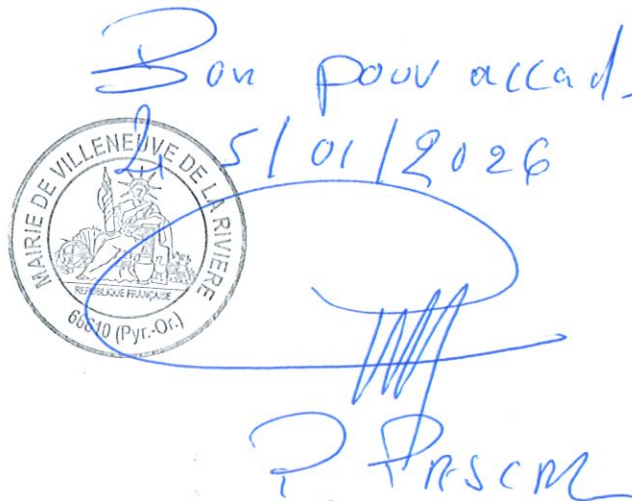 Bon pour accad.
Le 5/01/2026
MAIRIE DE VILLENEUVE DE LA RIVIERE
REPUBLIQUE FRANÇAISE
66610 (Pyr.-Or.)
P. PASCAL